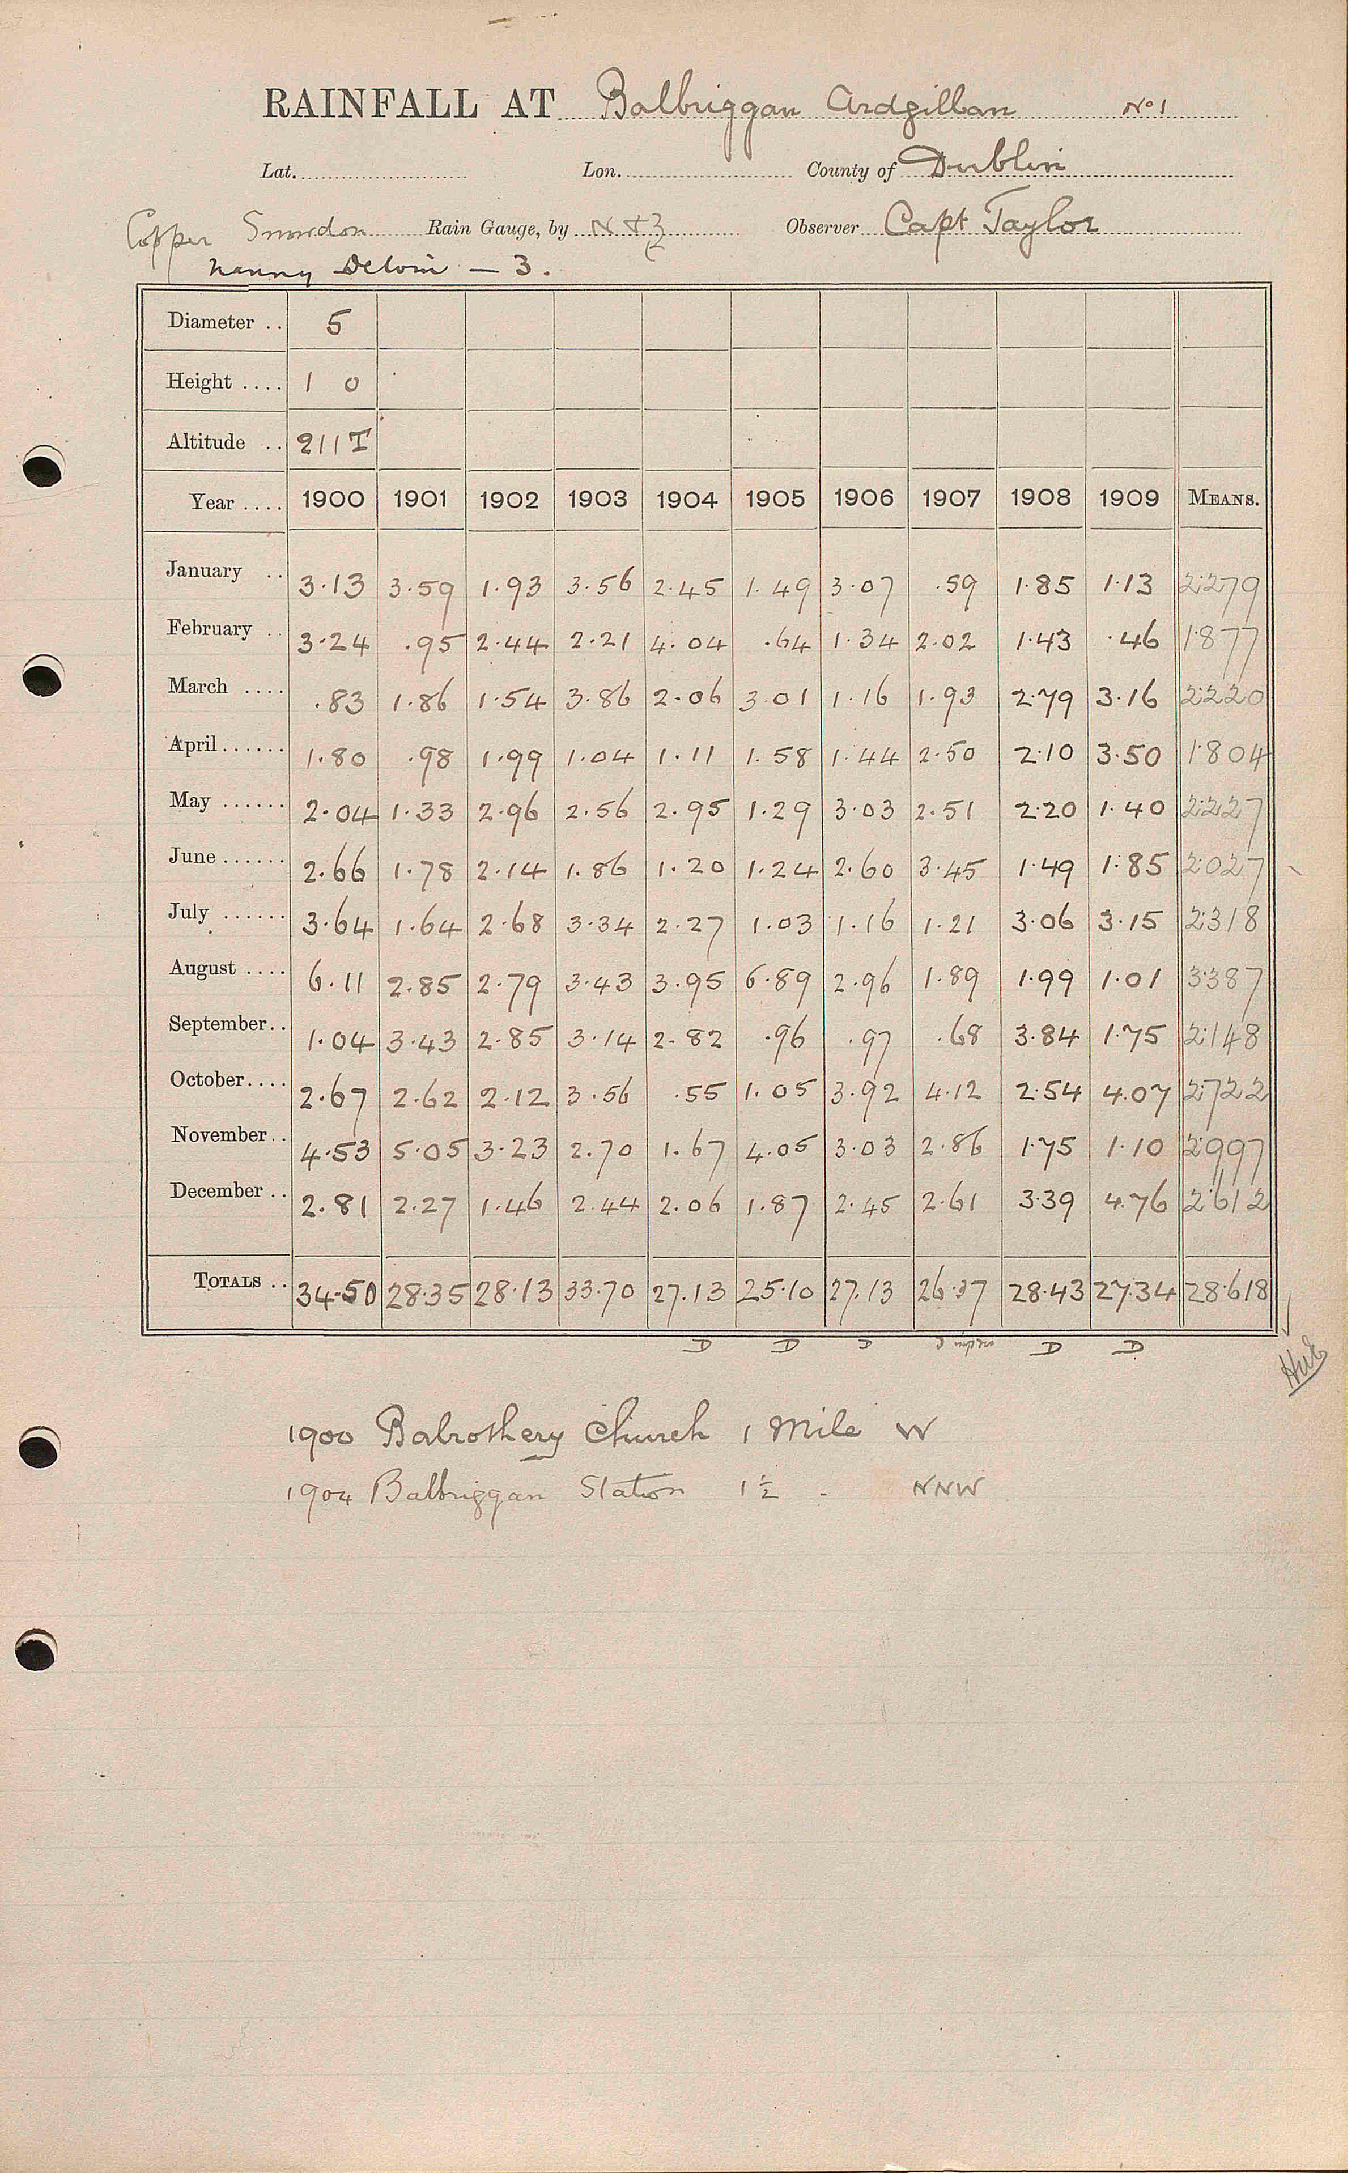 RAINFALL AT Balbriggan Ardgillan No 1
Lat. Lon. County of Dublin
Copper Snowdon Rain Gauge, by N & Z Observer Capt Taylor
Nanny Delvin — 3.
Diameter .. 5
Height .... 1 0
Altitude .. 211 T
Year .... 1900 1901 1902 1903 1904 1905 1906 1907 1908 1909 MEANS.
January .. 3.13 3.59 1.93 3.56 2.45 1.49 3.07 .59 1.85 1.13 2.279
February .. 3.24 .95 2.44 2.21 4.04 .64 1.34 2.02 1.43 .46 1.877
March .... .83 1.86 1.54 3.86 2.06 3.01 1.16 1.93 2.79 3.16 2.220
April ...... 1.80 .98 1.99 1.04 1.11 1.58 1.44 2.50 2.10 3.50 1.804
May ...... 2.04 1.33 2.96 2.56 2.95 1.29 3.03 2.51 2.20 1.40 2.227
June ...... 2.66 1.78 2.14 1.86 1.20 1.24 2.60 3.45 1.49 1.85 2.027
July ...... 3.64 1.64 2.68 3.34 2.27 1.03 1.16 1.21 3.06 3.15 2.318
August .... 6.11 2.85 2.79 3.43 3.95 6.89 2.96 1.89 1.99 1.01 3.387
September.. 1.04 3.43 2.85 3.14 2.82 .96 .97 .68 3.84 1.75 2.148
October.... 2.67 2.62 2.12 3.56 .55 1.05 3.92 4.12 2.54 4.07 2.722
November.. 4.53 5.05 3.23 2.70 1.67 4.05 3.03 2.86 1.75 1.10 2.997
December .. 2.81 2.27 1.46 2.44 2.06 1.87 2.45 2.61 3.39 4.76 2.612
TOTALS .. 34.50 28.35 28.13 33.70 27.13 25.10 27.13 26.37 28.43 27.34 28.618
D D D D D
1900 Balrothery Church 1 Mile W
1904 Balbriggan Station 1½ . NNW